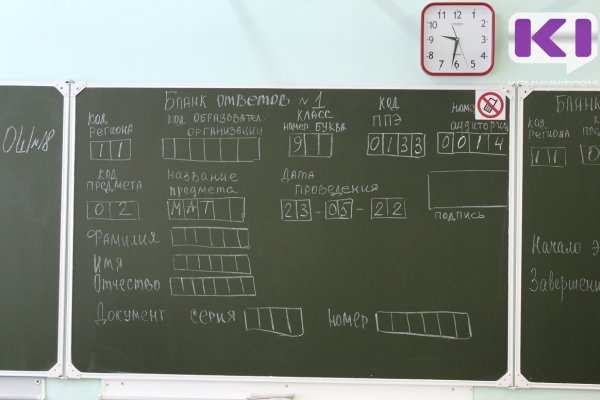 12 1 2 3 4 5 6 7 8 9 10 11
KI
Бланк ответов №1
код региона
код образоват. организации
класс номер буква
код ППЭ
аудитории
11
9
0133
0014
код предмета
название предмета
дата проведения
02
МАТ
23-05-22
подпись
Фамилия
Имя
Отчество
Документ серия номер
Бланк
код региона
11
Начало э
Завершени